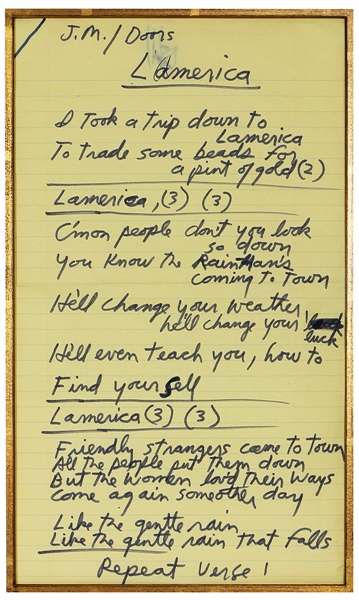 J.M./Doors
Lamerica
I Took a trip down to
Lamerica
To Trade some beads for
a pint of gold (2)
Lamerica, (3) (3)
C'mon people don't you look
so down
You Know the RainMan's
coming to Town
He'll change your weather,
he'll change your
luck
He'll even teach you, how to
Find yourself
Lamerica (3) (3)
Friendly strangers came to town
All the people put them down
But the women loved their ways
come again someother day
Like the gentle rain
Like the gentle rain that falls
Repeat Verse 1